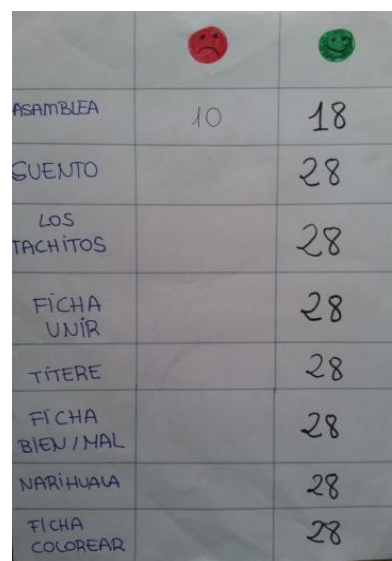 ASAMBLEA 10 18
CUENTO 28
LOS
TACHITOS 28
FICHA
UNIR 28
TITERE 28
FICHA
BIEN / MAL 28
NARIHUALA 28
FICHA
COLOREAR 28